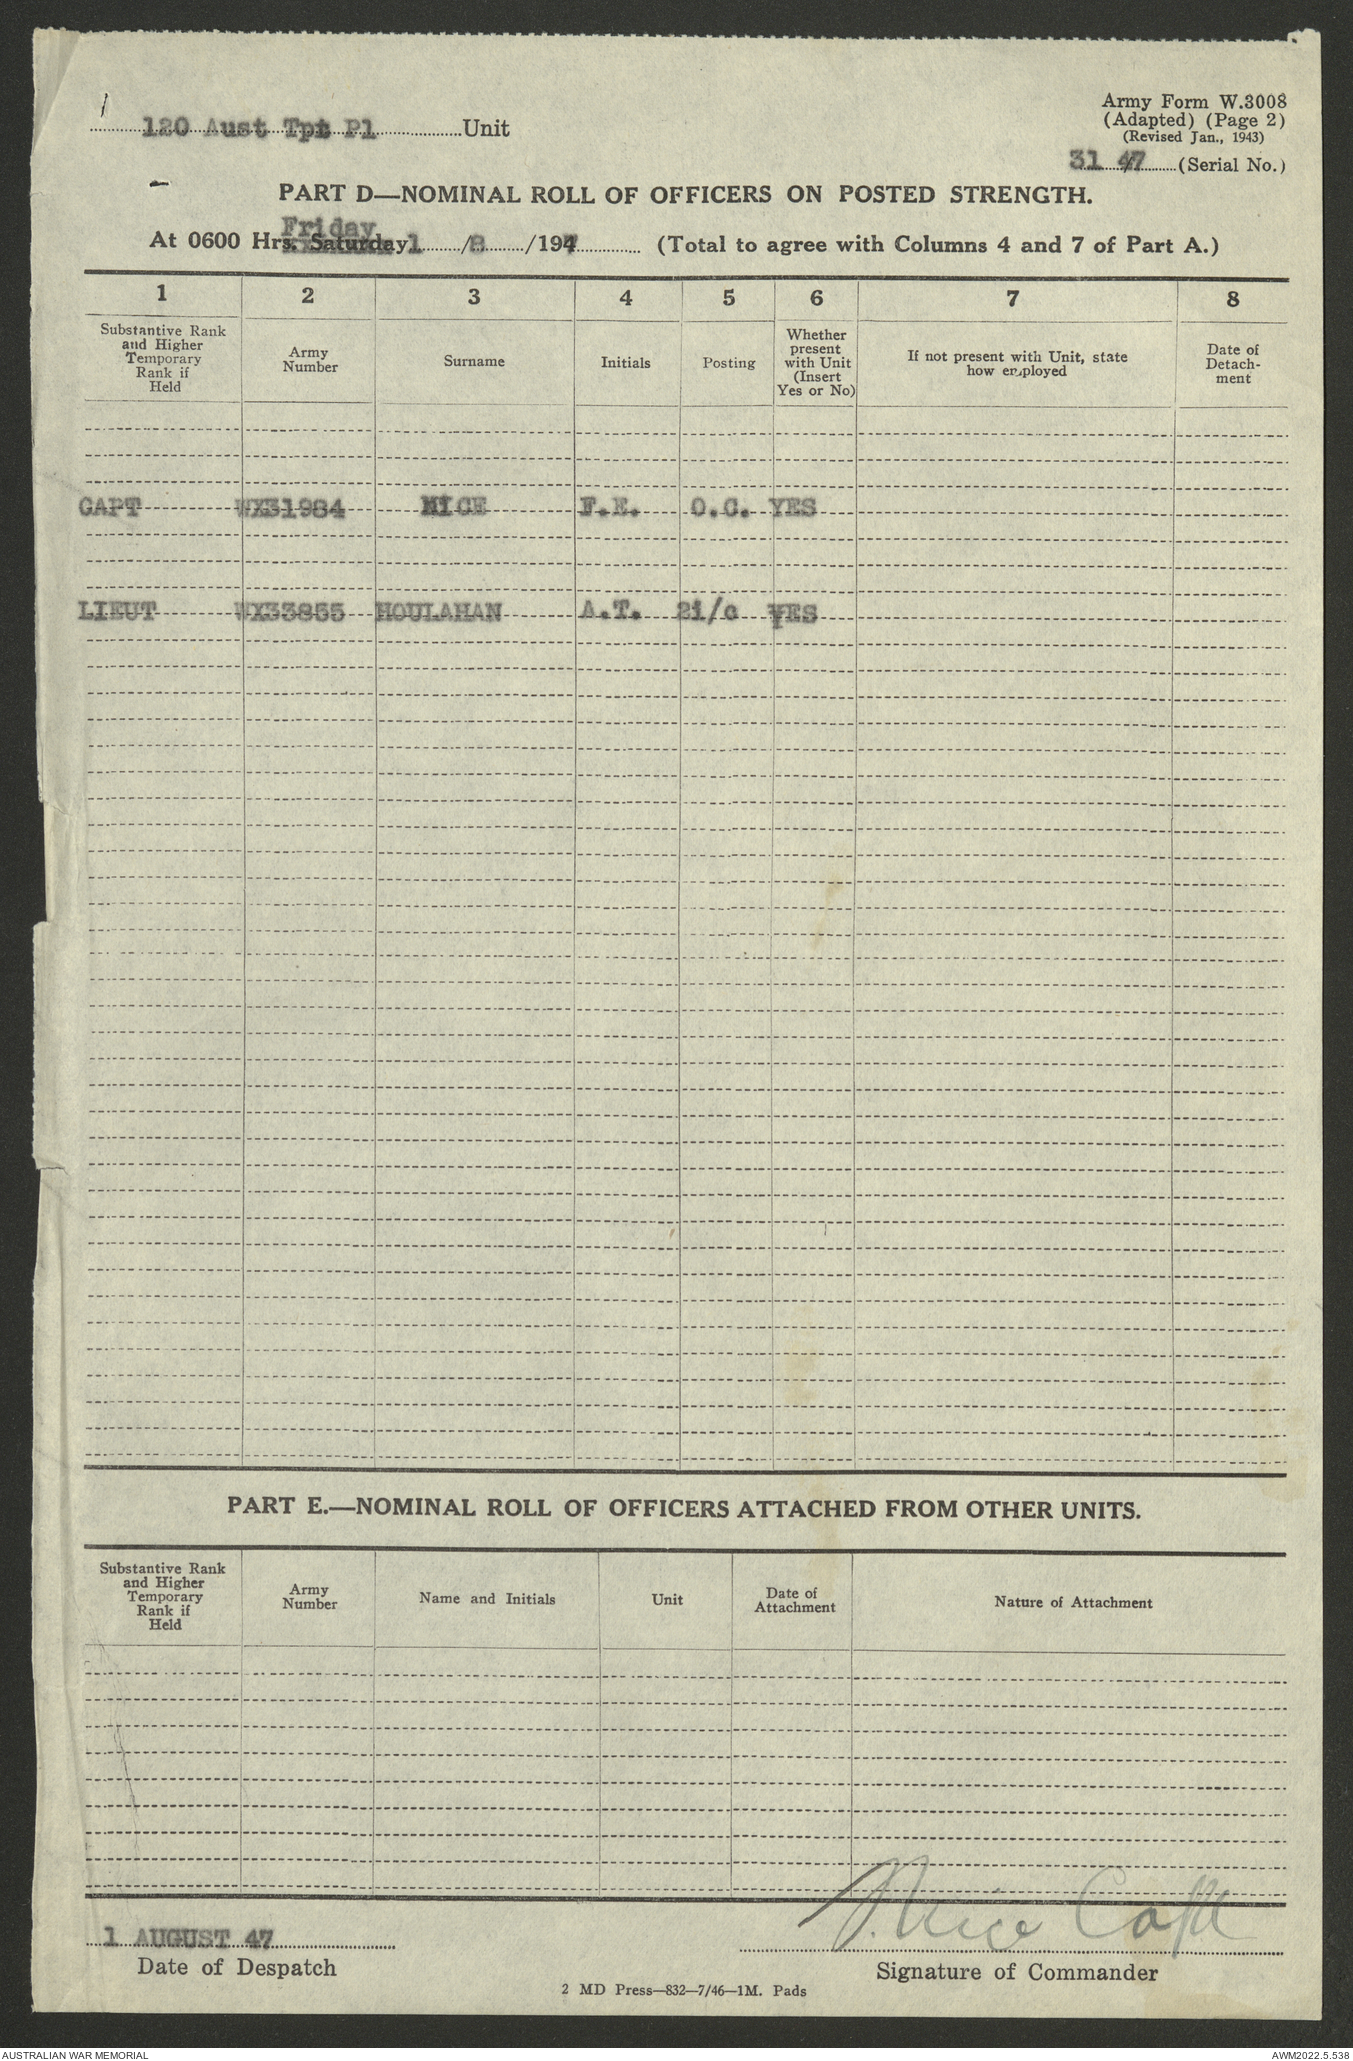 120 Aust Tpt Pl Unit
Army Form W.3008
(Adapted) (Page 2)
(Revised Jan., 1943)
31 /47 (Serial No.)
PART D—NOMINAL ROLL OF OFFICERS ON POSTED STRENGTH.
Friday
At 0600 Hrs. Saturday 1/8/1947 (Total to agree with Columns 4 and 7 of Part A.)
1 2 3 4 5 6 7 8
Substantive Rank and Higher Temporary Rank if Held
Army Number
Surname
Initials
Posting
Whether present with Unit (Insert Yes or No)
If not present with Unit, state how employed
Date of Detach-ment
CAPT WX31984 NICE F.E. O.C. YES
LIEUT WX33855 HOULAHAN A.T. 2i/c YES
PART E.—NOMINAL ROLL OF OFFICERS ATTACHED FROM OTHER UNITS.
Substantive Rank and Higher Temporary Rank if Held
Army Number
Name and Initials
Unit
Date of Attachment
Nature of Attachment
1 AUGUST 47
Date of Despatch
Nice Capt
Signature of Commander
2 MD Press—832—7/46—1M. Pads
AUSTRALIAN WAR MEMORIAL
AWM2022.5.538